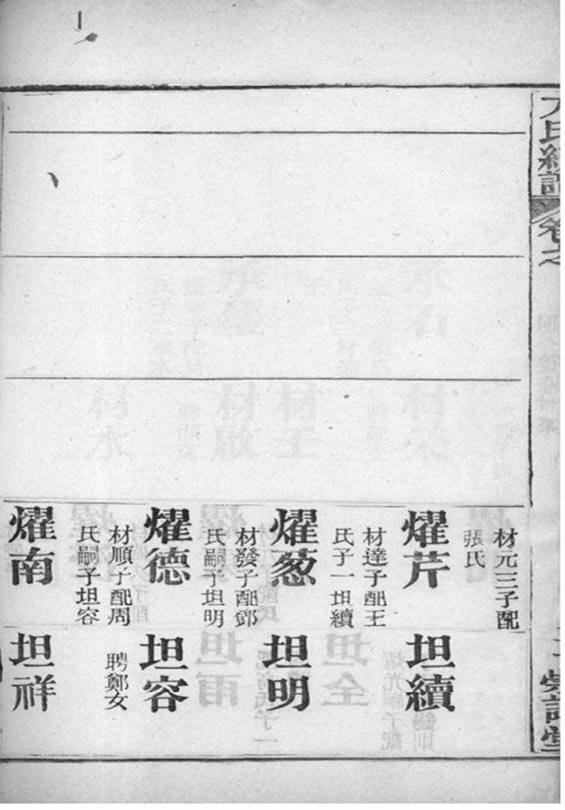 氏續譜
卷之
材元三子配
張氏
燿芹
材達子配王
氏子一坦續
燿葱
材發子配鄧
氏嗣子坦明
燿德
材順子配周
氏嗣子坦容
燿南
坦續
坦明
坦容
聘鄭女
坦祥